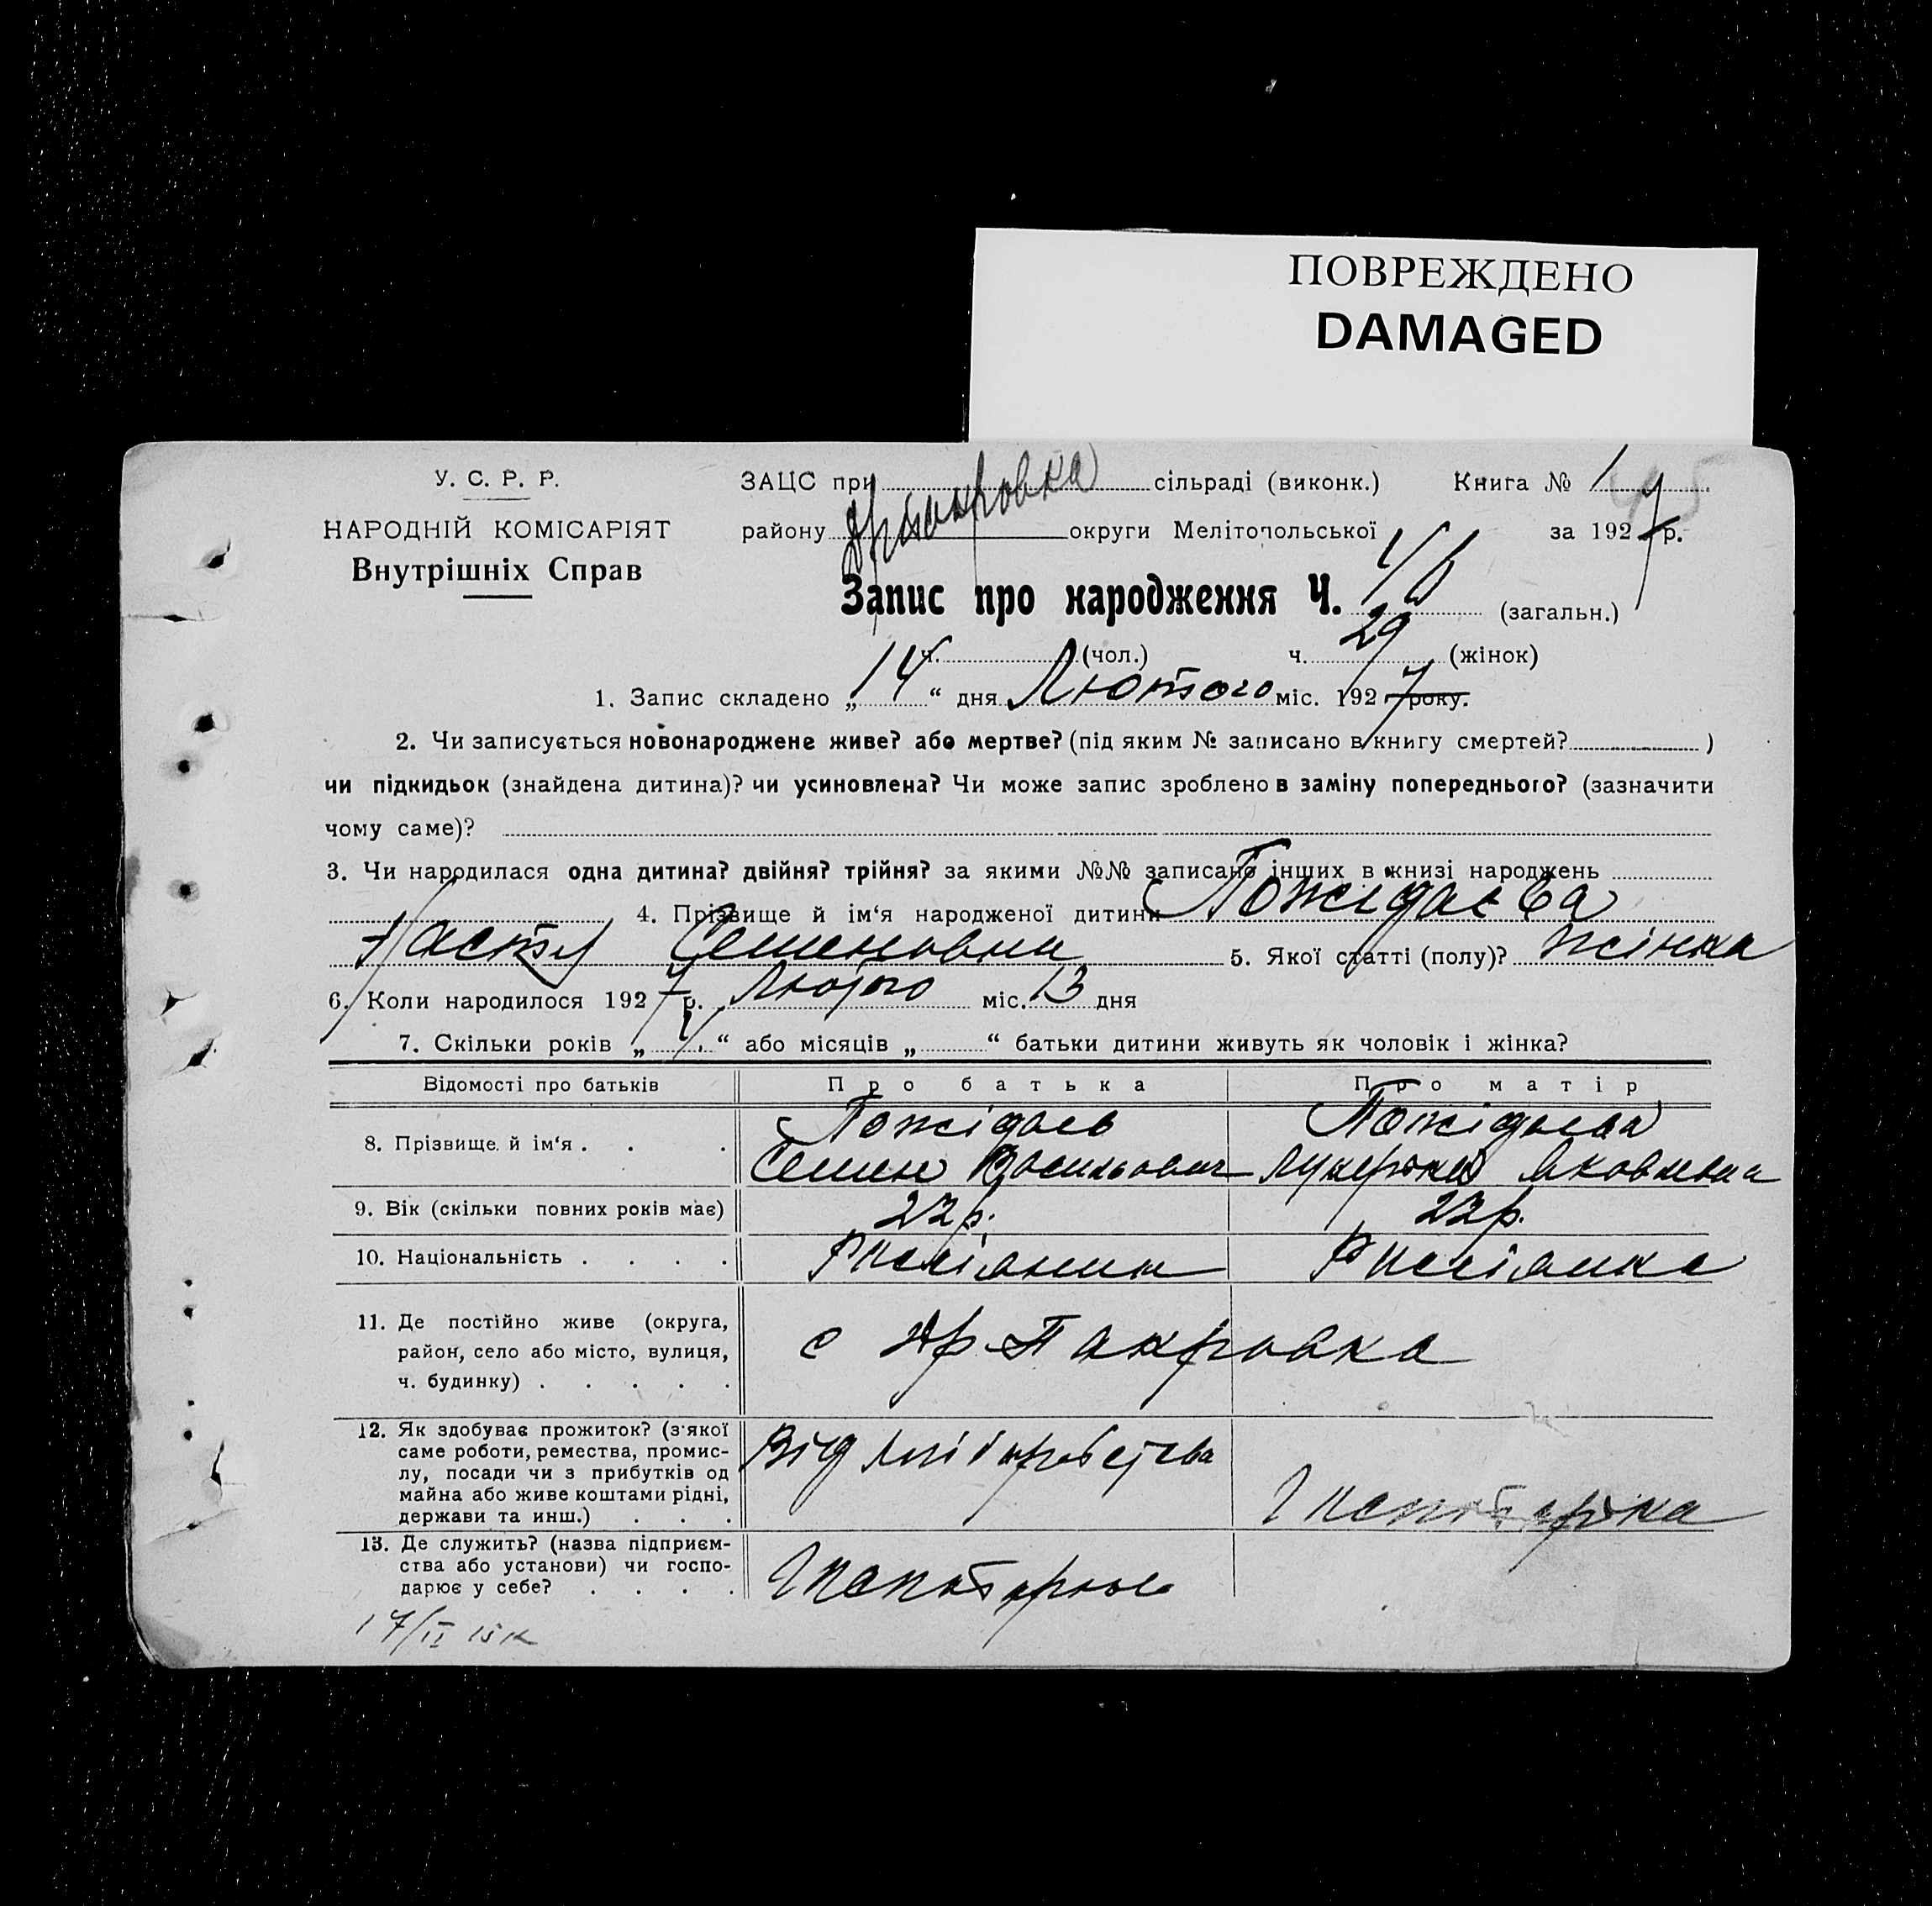 ПОВРЕЖДЕНО
DAMAGED
У. С. Р. Р.
НАРОДНІЙ КОМІСАРІЯТ
Внутрішніх Справ
ЗАЦС при сільраді (виконк.) Книга № 1
району округи Мелітопольської за 1927 р.
Запис про народження Ч. (загальн.)
ч. (чол.) ч. 29 (жінок)
1. Запис складено „14“ дня Лютого міс. 1927 року.
2. Чи записується новонароджене живе? або мертве? (під яким № записано в книгу смертей? )
чи підкидьок (знайдена дитина)? чи усиновлена? Чи може запис зроблено в заміну попереднього? (зазначити
чому саме)?
3. Чи народилася одна дитина? двійня? трійня? за якими №№ записано інших в книзі народжень
4. Прізвище й ім‘я народженої дитини Пожідаєва
Настя Семеновна 5. Якої статті (полу)? жінка
6. Коли народилося 1927 р. Лютого міс. 13 дня
7. Скільки років „ “ або місяців „ “ батьки дитини живуть як чоловік і жінка?
Відомості про батьків Про батька Про матір
8. Прізвище й ім‘я . . . Пожідаєв Пожідаєва
Семен Васильович Яковлевна
9. Вік (скільки повних років має) 22 р. 22 р.
10. Національність . . . .
11. Де постійно живе (округа,
район, село або місто, вулиця,
ч. будинку) . . . . .
с Пакровка
12. Як здобуває прожиток? (з‘якої
саме роботи, ремества, промис-
лу, посади чи з прибутків од
майна або живе коштами рідні,
держави та инш.) . . .
Від
13. Де служить? (назва підприєм-
ства або установи) чи госпо-
дарює у себе? . . . .
17/II